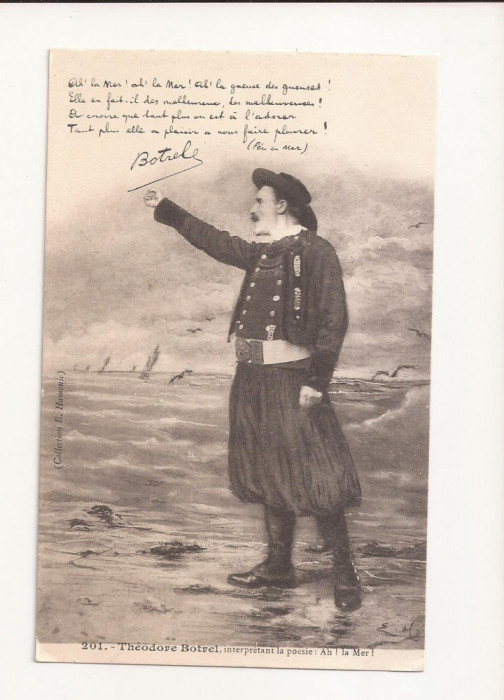 Ah! la Mer! ah! la Mer! Ah! la gueuse des gueuses!
Elle en fait-il des malheureux, des malheureuses!
Et croire que tant plus on est à l'adorer
Tant plus elle a plaisir a nous faire pleurer!
(Péri en Mer)
Botrel
(Collection E. Hamonic)
E. H
201. - Théodore Botrel, interprétant la poésie : Ah ! la Mer !